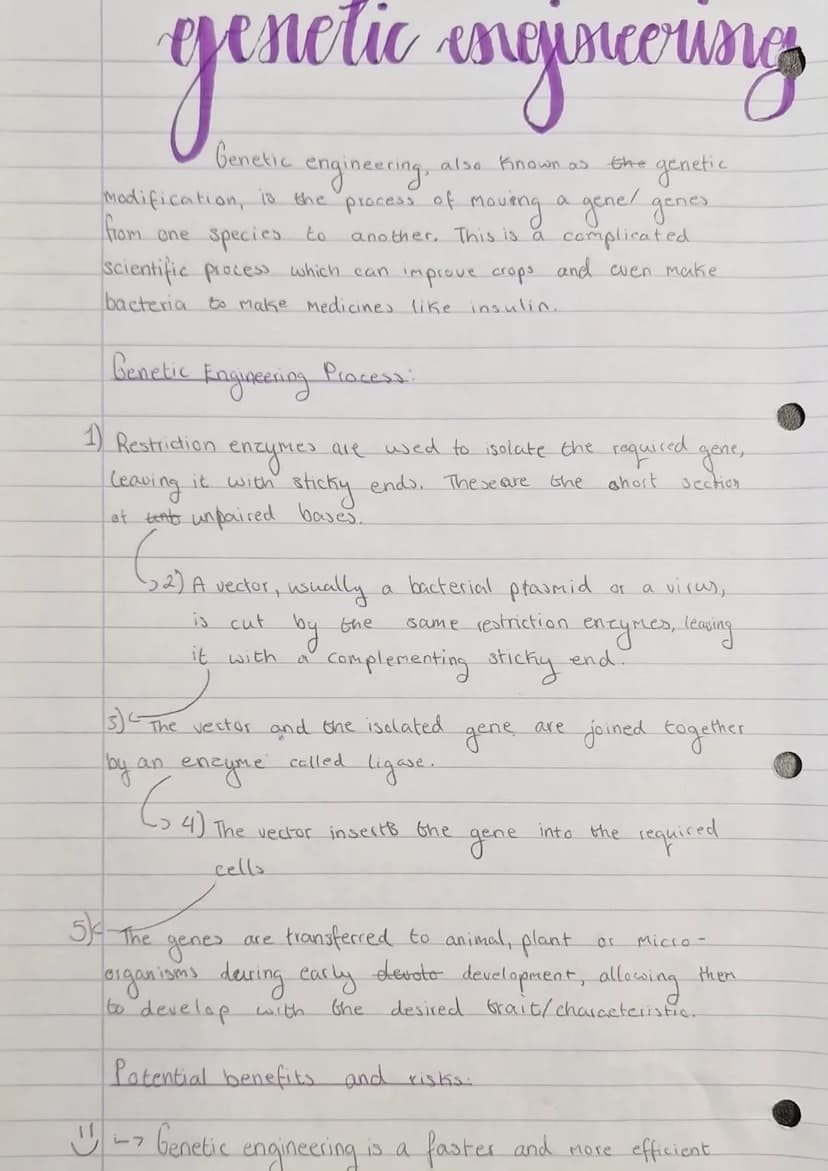 genetic engineering
Genetic engineering, also known as the genetic
modification, is the process of moving a gene/ genes
from one species to another. This is a complicated
scientific process which can improve crops and even make
bacteria to make medicines like insulin.
Genetic Engineering Process:
1) Restriction enzymes are used to isolate the required gene,
leaving it with sticky ends. These are the short section
of unpaired bases.
2) A vector, usually a bacterial plasmid or a virus,
is cut by the same restriction enzymes, leaving
it with a complementing sticky end.
3) The vector and the isolated gene are joined together
by an enzyme called ligase.
4) The vector inserts the gene into the required
cells
5) The genes are transferred to animal, plant or micro-
organisms during early development, allowing them
to develop with the desired trait/characteristic.
Potential benefits and risks:
Genetic engineering is a faster and more efficient